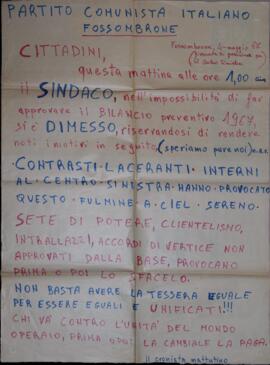 PARTITO COMUNISTA ITALIANO
FOSSOMBRONE
CITTADINI,
Fossombrone, 4-maggio
questa mattina alle ore 1,00
il SINDACO, nell'impossibilità di far
approvare il BILANCIO preventivo 1967,
si è DIMESSO, riservandosi di rendere
noti i motivi in seguito. (speriamo pure noi)
·CONTRASTI·LACERANTI·INTERNI
AL·CENTRO·SINISTRA·HANNO·PROVOCATO
QUESTO·FULMINE·A·CIEL·SERENO·
SETE DI POTERE, CLIENTELISMO,
INTRALLAZZI, ACCORDI DI VERTICE NON
APPROVATI DALLA BASE, PROVOCANO
PRIMA O POI LO SFACELO.
NON BASTA AVERE LA TESSERA EGUALE
PER ESSERE EGUALI E UNIFICATI!!!
CHI VA CONTRO L'UNITÀ DEL MONDO
OPERAIO, PRIMA O POI LA CAMBIALE LA PAGA.
il cronista mattutino